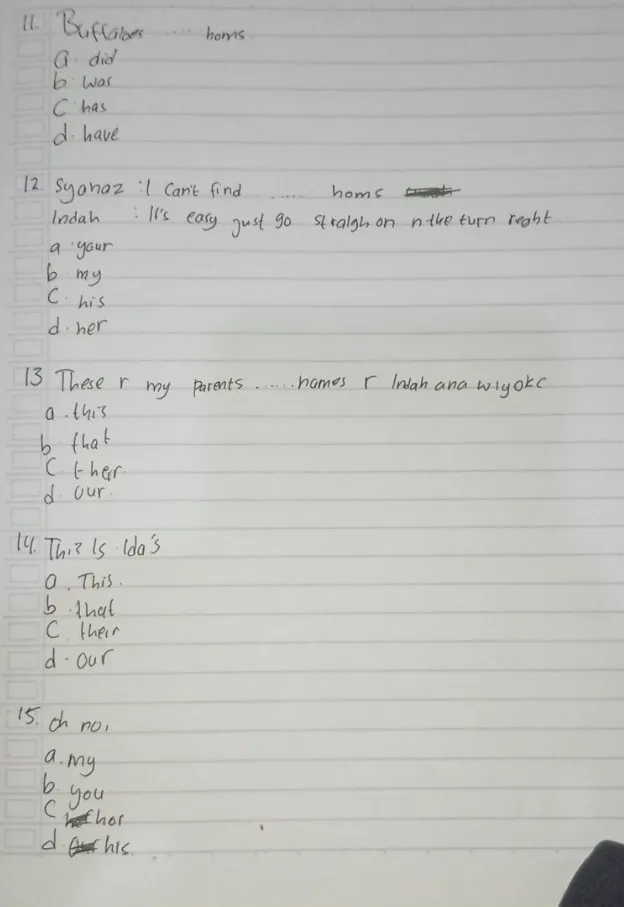 11. Buffaloes ..... horns
a. did
b. was
c. has
d. have
12. Syahaz : I can't find ..... homs
Indah : It's easy just go straigh on n the turn right
a. your
b. my
c. his
d. her
13 These r my parents ...... names r Indah ana wiyoko
a. this
b. that
c. their
d. our.
14. This is Ida's
a. This.
b. that
c. their
d. our
15. oh no,
a. my
b. you
c. her
d. his.